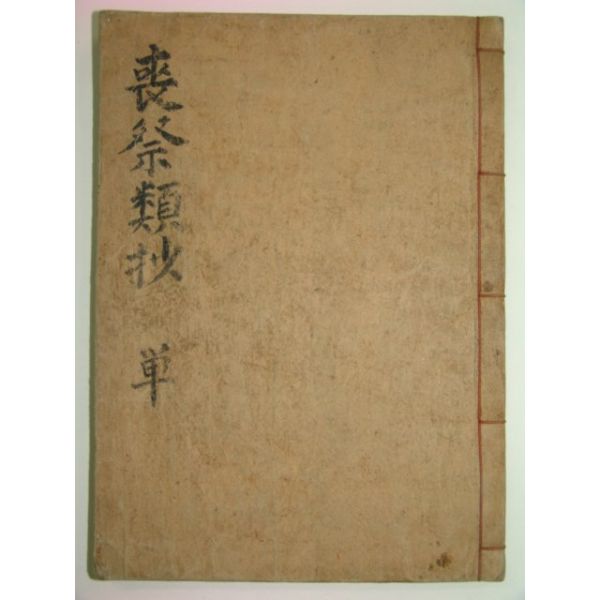 喪祭類抄
単